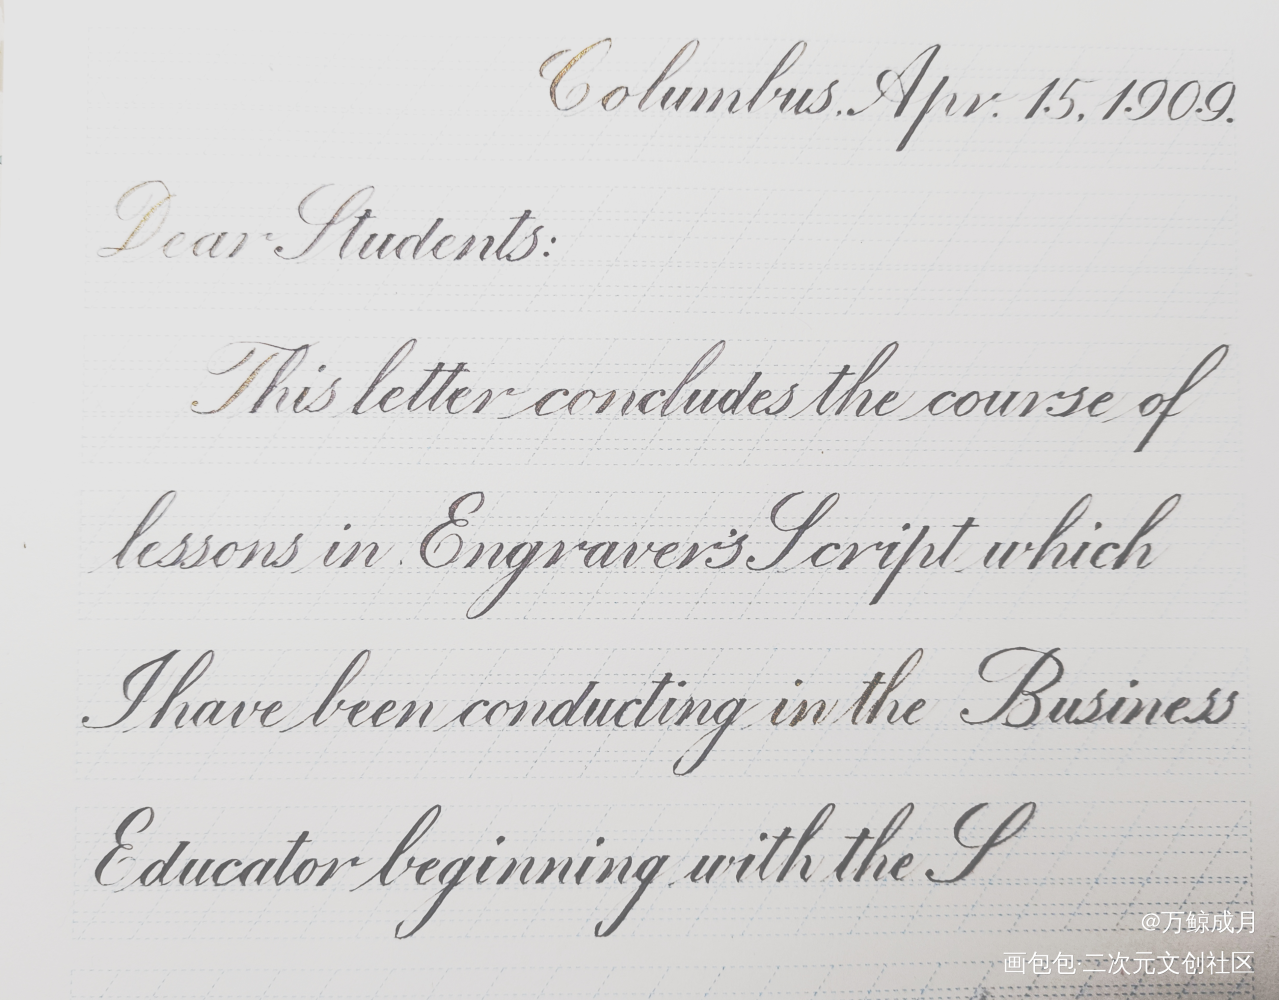 Columbus, Apr. 15, 1909.
Dear Students:
This letter concludes the course of
lessons in Engraver's Script which
I have been conducting in the Business
Educator beginning with the S
@万鲸成月
画包包·二次元文创社区